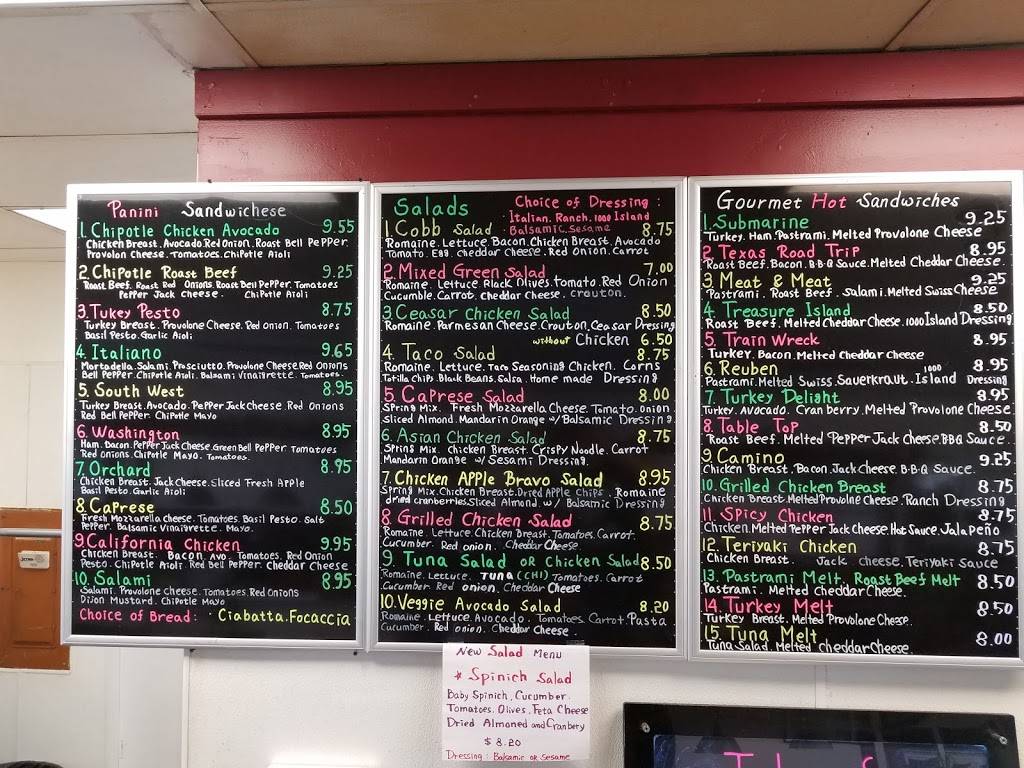 Panini Sandwichese
1. Chipotle Chicken Avocado 9.55
Chicken Breast. Avocado. Red Onion. Roast Bell Pepper.
Provolon Cheese. Tomatoes. Chipotle Aioli
2. Chipotle Roast Beef 9.25
Roast Beef. Roast Red Onions. Roast Bell Pepper. Tomatoes
Pepper Jack Cheese. Chipotle Aioli
3. Tukey Pesto 8.75
Turkey Breast. Provolone Cheese. Red Onion. Tomatoes
Basil Pesto. Garlic Aioli
4. Italiano 9.65
Mortadella. Salami. Prosciutto. Provolone Cheese. Red Onions
Bell Pepper. Chipotle Aioli. Balsami Vinaigrette. Tomatoes.
5. South West 8.95
Turkey Breast. Avocado. Pepper Jack Cheese. Red Onions
Red Bell Pepper. Chipotle Mayo
6. Washington 8.95
Ham. Bacon. Pepper Jack Cheese. Green Bell Pepper Tomatoes
Red onions. Chipotle Mayo. Tomatoes.
7. Orchard 8.95
Chicken Breast. Jack Cheese. Sliced Fresh Apple
Basil Pesto. Garlic Aioli
8. Caprese 8.50
Fresh Mozzarella Cheese. Tomatoes. Basil Pesto. Salt
Pepper. Balsamic Vinaigrette. Mayo.
9. California Chicken 9.95
Chicken Breast. Bacon. Avo. Tomatoes. Red Onion
Pesto. Chipotle Aioli. Red Bell Pepper. Cheddar Cheese
10. Salami 8.95
Salami. Provolone Cheese. Tomatoes. Red Onions
Dijon Mustard. Chipotle Mayo
Choice of Bread: Ciabatta. Focaccia
Salads
Choice of Dressing:
Italian. Ranch. 1000 Island
Balsamic. Sesame
1. Cobb Salad 8.75
Romaine. Lettuce. Bacon. Chicken Breast. Avocado
Tomato. Egg. Cheddar Cheese. Red Onion. Carrot
2. Mixed Green Salad 7.00
Romaine. Lettuce. Black Olives. Tomato. Red Onion
Cucumble. Carrot. Cheddar Cheese. crouton.
3. Ceasar Chicken Salad 8.50
Romaine. Parmesan Cheese. Crouton. Ceasar Dressing
without Chicken 6.50
4. Taco Salad 8.75
Romaine. Lettuce. Taco Seasoning Chicken. Corns
Totilla Chips. Black Beans. Salsa. Home made Dressing
5. Caprese Salad 8.00
Spring Mix. Fresh Mozzarella Cheese. Tomato. onion
Sliced Almond. Mandarin Orange w/ Balsamic Dressing
6. Asian Chicken Salad 8.75
Spring Mix. Chicken Breast. Crispy Noodle. Carrot
Mandarin Orange w/ Sesami Dressing.
7. Chicken Apple Bravo Salad 8.95
Spring Mix. Chicken Breast. Dried Apple Chips. Romaine
dried cranberries. Sliced Almond. w/ Balsamic Dressing
8. Grilled Chicken Salad 8.75
Romaine. Lettuce. Chicken Breast. Tomatoes. Carrot.
Cucumber. Red onion. Cheddar Cheese
9. Tuna Salad OR Chicken Salad 8.50
Romaine. Lettuce. TUNA (CHI) Tomatoes. Carrot
Cucumber. Red onion. Cheddar Cheese
10. Veggie Avocado Salad 8.20
Romaine. Lettuce. Avocado. Tomatoes. Carrot. Pasta
Cucumber. Red onion. Cheddar Cheese.
Gourmet Hot Sandwiches
1. Submarine 9.25
Turkey. Ham. Pastrami. Melted Provolone Cheese
2. Texas Road Trip 8.95
Roast Beef. Bacon. B·B·Q Sauce. Melted Cheddar Cheese.
3. Meat & Meat 9.25
Pastrami. Roast Beef. Salami. Melted Swiss Cheese
4. Treasure Island 8.50
Roast Beef. Melted Cheddar Cheese. 1000 Island Dressing
5. Train Wreck 8.95
Turkey. Bacon. Melted Cheddar Cheese
6. Reuben 8.95
Pastrami. Melted Swiss. Sauerkraut. 1000 Island Dressing
7. Turkey Delight 8.95
Turkey. Avocado. Cranberry. Melted Provolone Cheese
8. Table Top 8.50
Roast Beef. Melted Pepper Jack Cheese. B.B.Q Sauce.
9. Camino 9.25
Chicken Breast. Bacon. Jack Cheese. B·B·Q Sauce.
10. Grilled Chicken Breast 8.75
Chicken Breast. Melted Provolone Cheese. Ranch Dressing
11. Spicy Chicken 8.75
Chicken. Melted Pepper Jack Cheese. Hot Sauce. Jalapeño
12. Teriyaki Chicken 8.75
Chicken Breast. Jack cheese. Teriyaki Sauce
13. Pastrami Melt. Roast Beef Melt 8.50
Pastrami. Melted Cheddar Cheese.
14. Turkey Melt 8.50
Turkey Breast. Melted Provolone Cheese.
15. Tuna Melt 8.00
Tuna Salad. Melted Cheddar Cheese.
New Salad Menu
* Spinich Salad
Baby Spinich, Cucumber.
Tomatoes. Olives. Feta Cheese
Dried Almoned and Cranbery
$ 8.20
Dressing: Balsamic or Sesame